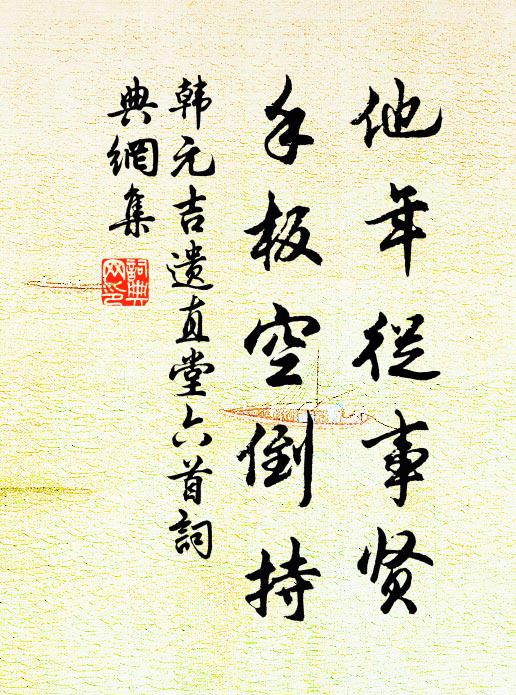 他年從事贤
手板空倒持
韩元吉遗直堂六首詞
典網集
詞典
网印